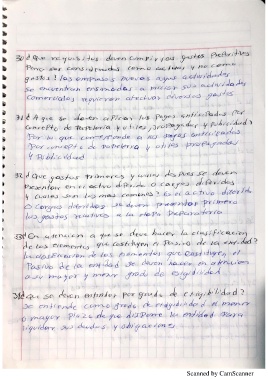 30 ¿Que requisitos deben cumplir los gastos preoperativos
para ser considerados como activos y no como
gastos? las empresas nuevas cuyas actividades
se encuentran encaminadas a iniciar sus actividades
comerciales requieren efectuar diversos gastos
31 ¿A que se deben aplicar los pagos anticipados por
concepto de papeleria y utiles, propaganda y publicidad?
Por lo que corresponde a los pagos anticipados
Por concepto de papeleria y utiles propaganda
y Publicidad
32 ¿Que gastos primeros y cuales despues se deben
Presentar en el activo diferido o cargos diferidos,
y cuales son los mas comunes? En el activo diferido
o cargos diferidos se deben presentar primero
los gastos relativos a la etapa preoperatoria
33 ¿En atencion a que se debe hacer la clasificacion
de los elementos que constituyen el Pasivo de la entidad?
la clasificacion de los elementos que constituyen el
Pasivo de la entidad se deben hacer en atencion
a su mayor y menor grado de exigibilidad
34 ¿Que se debe entender por grado de exigibilidad?
Se entiende como grado de exigibilidad el menor
o mayor plazo de que dispone la entidad para
liquidar sus deudas y obligaciones
Scanned by CamScanner